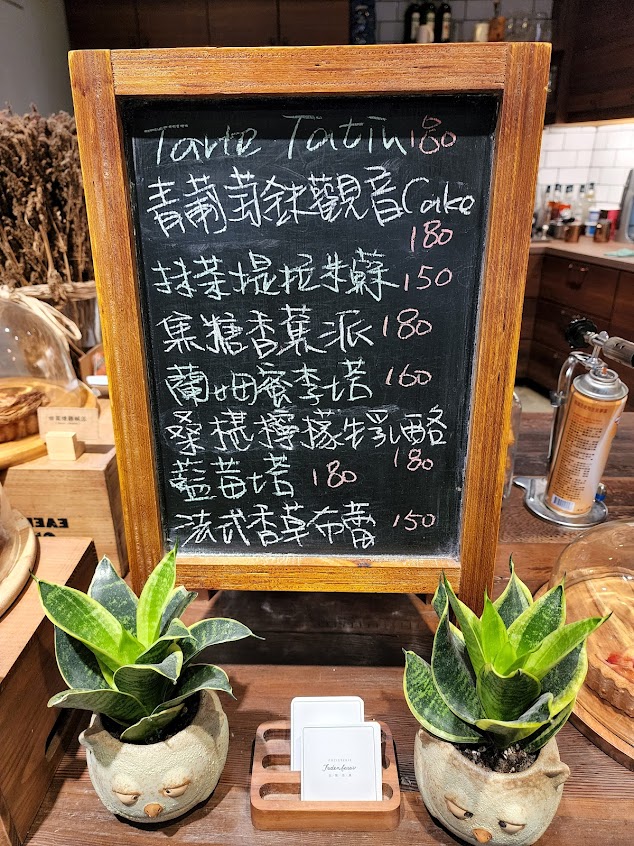 Tarte Tatin 180
青葡萄鉄觀音Cake
180
抹茶堤拉米蘇 150
焦糖香蕉派 180
蘭姆蜜李塔 160
桑椹檸檬生乳酪
180
藍莓塔 180
法式香草布蕾 150